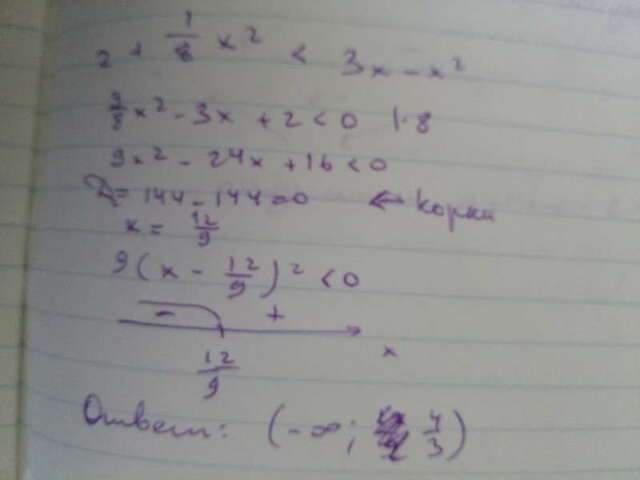 2 + 1/8 x² < 3x - x²
9/8 x² - 3x + 2 < 0 | · 8
9x² - 24x + 16 < 0
D = 144 - 144 = 0 ← корни
x = 12/9
9(x - 12/9)² < 0
- +
12/9 x
Ответ: (-∞; 4/3)